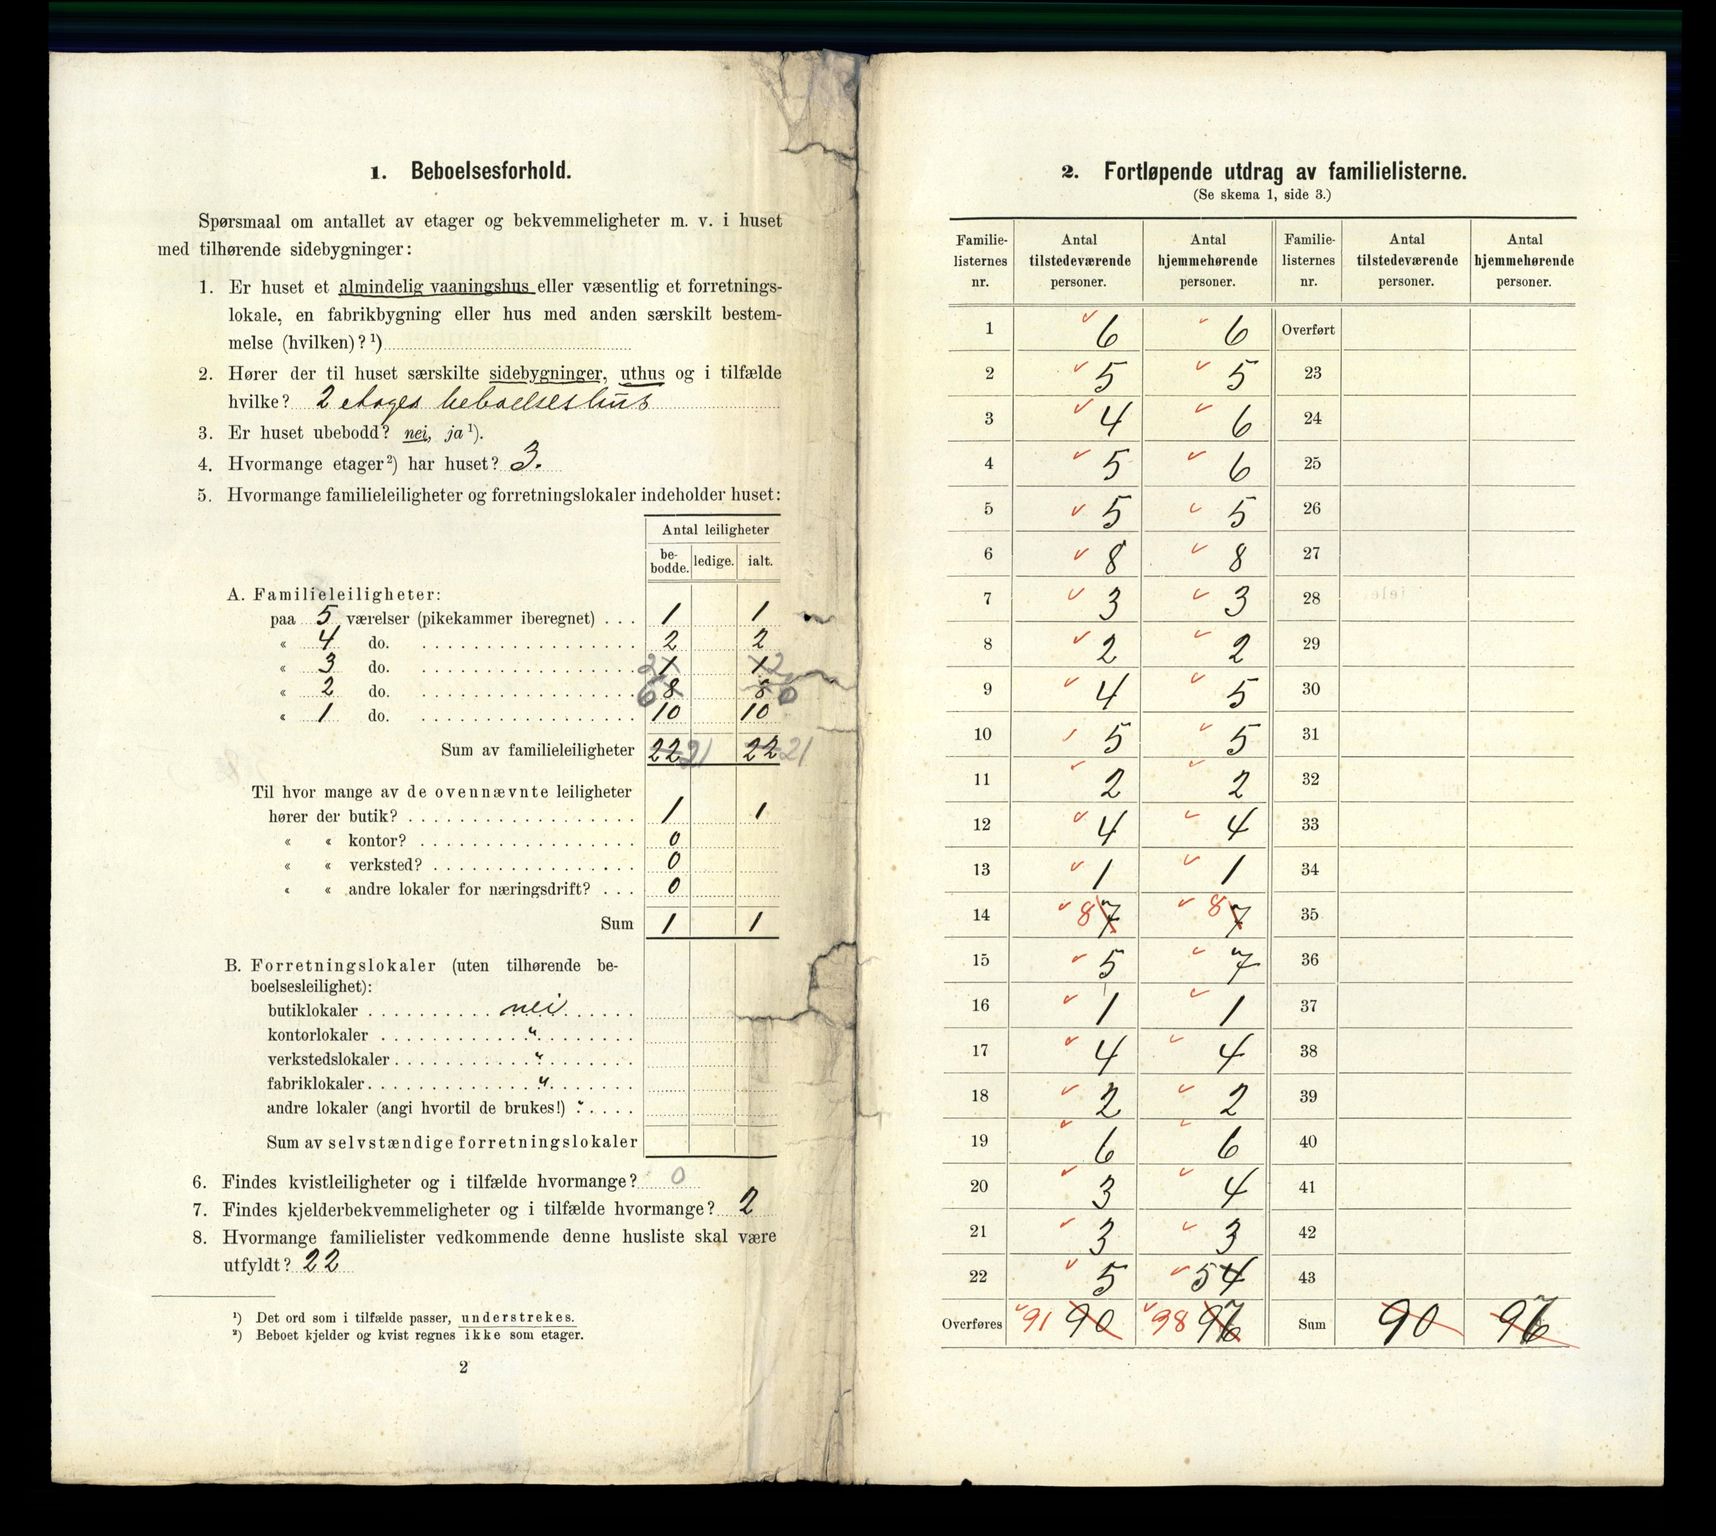 1. Beboelsesforhold.
Spørsmaal om antallet av etager og bekvemmeligheter m. v. i huset
med tilhørende sidebygninger:
1. Er huset et almindelig vaaningshus eller væsentlig et forretnings-
lokale, en fabrikbygning eller hus med anden særskilt bestem-
melse (hvilken)?¹)
2. Hører der til huset særskilte sidebygninger, uthus og i tilfælde
hvilke? 2 etages beboelseshus
3. Er huset ubebodd? nei, ja¹).
4. Hvormange etager²) har huset? 3.
5. Hvormange familieleiligheter og forretningslokaler indeholder huset:
Antal leiligheter
be-bodde. ledige. ialt.
A. Familieleiligheter:
paa 5 værelser (pikekammer iberegnet) . . . 1 1
« 4 do. 2 2
« 3 do. 2 1 1 2
« 2 do. 6 8 8
« 1 do. 10 10
Sum av familieleiligheter 22 21 22 21
Til hvor mange av de ovennævnte leiligheter
hører der butik? 1 1
« « kontor? 0
« « verksted? 0
« « andre lokaler for næringsdrift? . . . 0
Sum 1 1
B. Forretningslokaler (uten tilhørende be-
boelsesleilighet):
butiklokaler nei
kontorlokaler "
verkstedslokaler "
fabriklokaler "
andre lokaler (angi hvortil de brukes!) "
Sum av selvstændige forretningslokaler
6. Findes kvistleiligheter og i tilfælde hvormange? 0
7. Findes kjelderbekvemmeligheter og i tilfælde hvormange? 2
8. Hvormange familielister vedkommende denne husliste skal være
utfyldt? 22
¹) Det ord som i tilfælde passer, understrekes.
²) Beboet kjelder og kvist regnes ikke som etager.
2
2. Fortløpende utdrag av familielisterne.
(Se skema 1, side 3.)
Familie-listernes nr. Antal tilstedeværende personer. Antal hjemmehørende personer. Familie-listernes nr. Antal tilstedeværende personer. Antal hjemmehørende personer.
1 6 6 Overført
2 5 5 23
3 4 6 24
4 5 6 25
5 5 5 26
6 8 8 27
7 3 3 28
8 2 2 29
9 4 5 30
10 5 5 31
11 2 2 32
12 4 4 33
13 1 1 34
14 8 7 8 7 35
15 5 7 36
16 1 1 37
17 4 4 38
18 2 2 39
19 6 6 40
20 3 4 41
21 3 3 42
22 5 5 4 43
Overføres 91 90 98 97 Sum 90 97